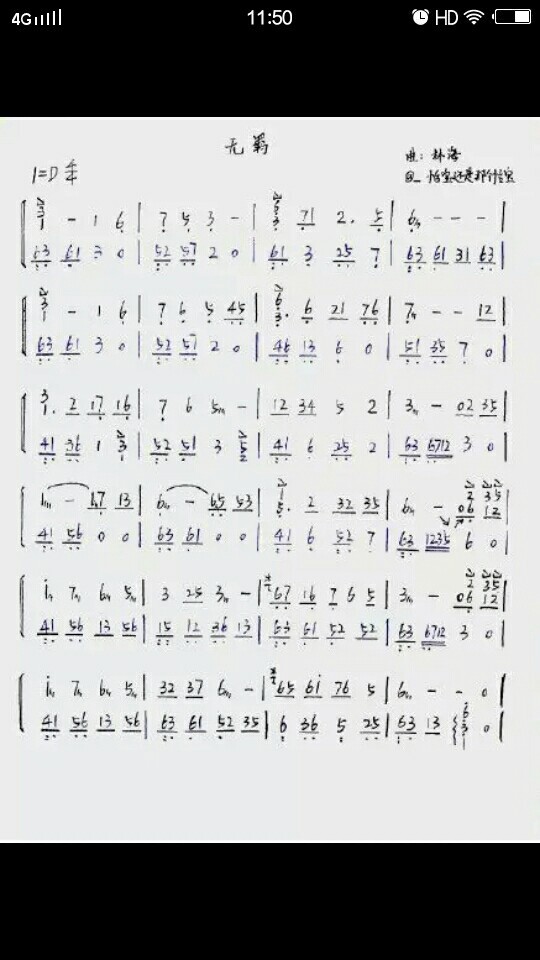 4G 11:50 HD
无羁
1=D 4/4
曲：林海
3 1 - 1 6 | 7 5 3 - | 6 3 3 71 2. 5 | 6 - - - |
63 61 3 0 | 52 57 2 0 | 61 3 25 7 | 63 61 31 63 |
3 1 - 1 6 | 7 6 5 45 | 6 3. 6 21 76 | 7 - - 12 |
63 61 3 0 | 52 57 2 0 | 46 13 6 0 | 51 35 7 0 |
3 1. 2 17 16 | 7 6 5 - | 12 34 5 2 | 3 - 02 35 |
41 36 1 | 52 51 3 | 41 6 25 2 | 63 6712 3 0 |
1 - 17 13 | 6 - 65 53 | 1 5. 2 32 35 | 6 - 2 06 35 12 |
41 56 0 0 | 63 61 0 0 | 41 6 52 7 | 63 1235 6 0 |
1 7 6 5 | 3 25 3 - | 67 16 7 6 5 | 3 - 2 06 35 12 |
41 56 13 56 | 15 12 36 13 | 63 61 52 52 | 63 6712 3 0 |
1 7 6 5 | 32 37 6 - | 65 61 76 5 | 6 - - 0 |
41 56 13 56 | 63 61 52 35 | 6 36 5 25 | 63 13 6 3 1 0 |